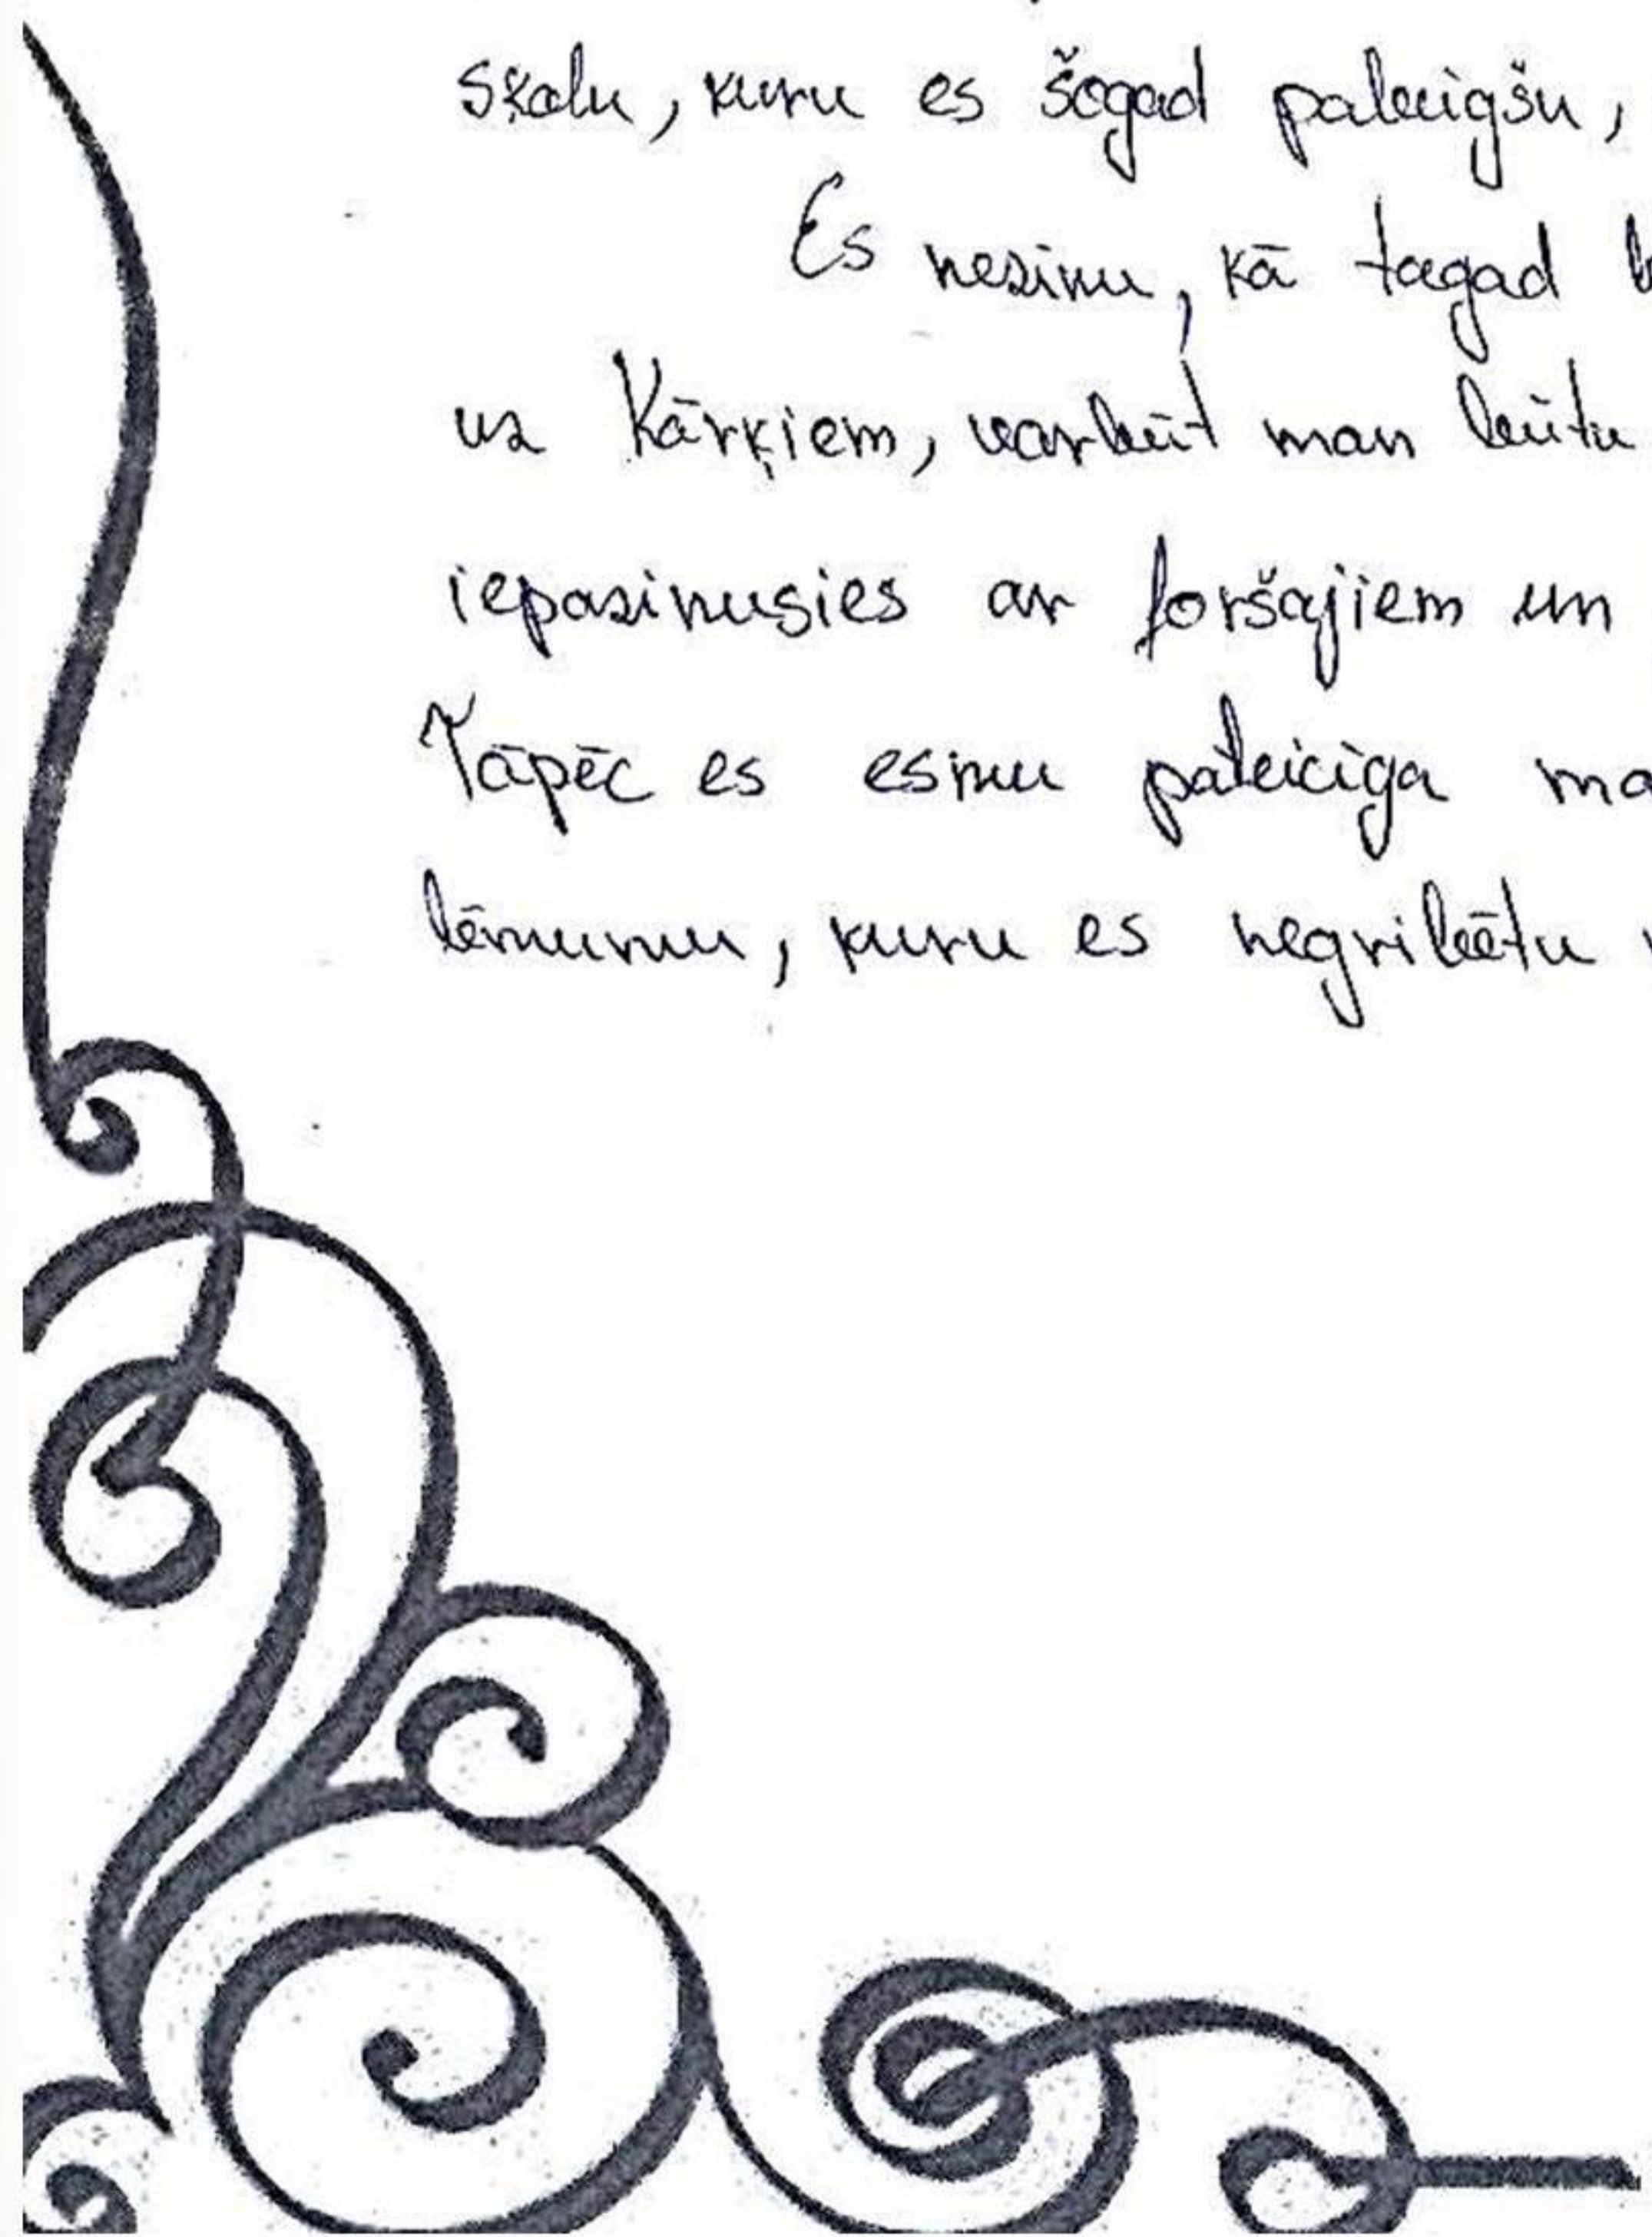 skolu, kuru es šogad pabeigšu,
Es nezinu, kā tagad
uz Kārķiem, varbūt man būtu
iepazinusies ar foršajiem un
Tāpēc es esmu pateicīga
lēmumu, kuru es negribētu